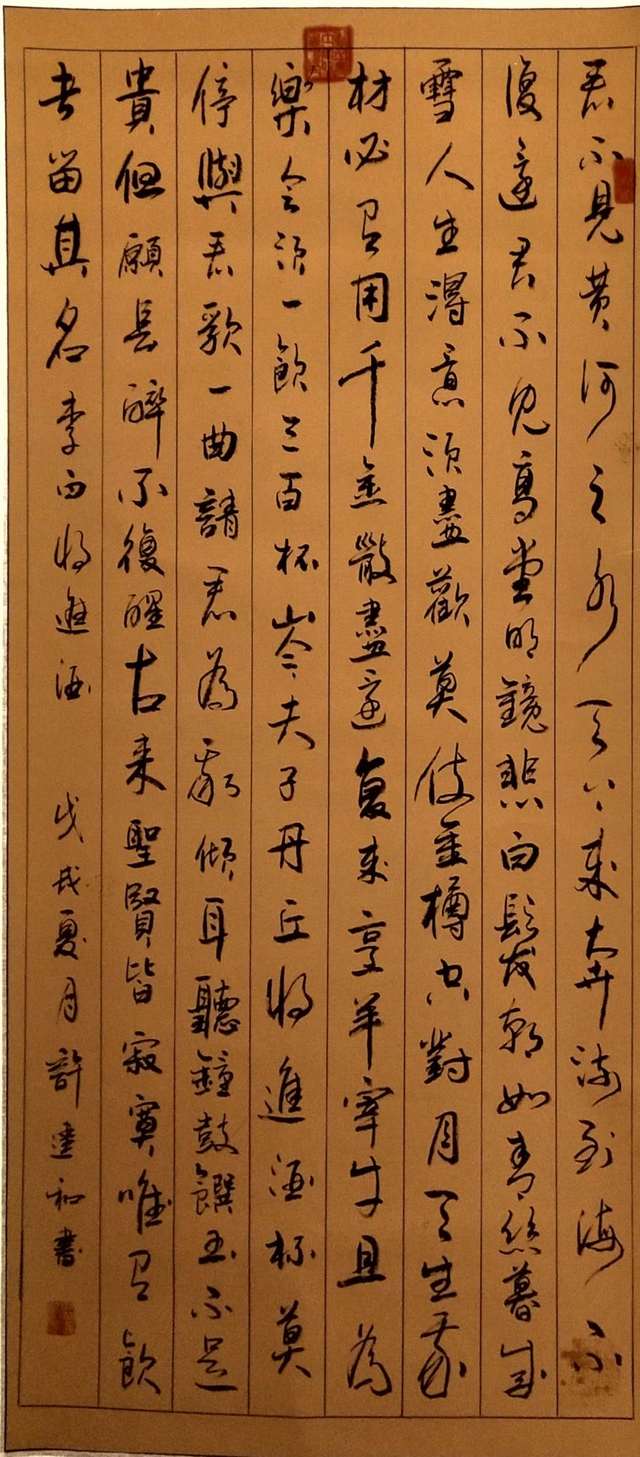 君不見黄河之水天上来奔流到海不
復還君不見高堂明鏡悲白髮朝如青絲暮成
雪人生得意須盡歡莫使金樽空對月天生我
材必有用千金散盡還復来烹羊宰牛且為
樂會須一飲三百杯岑夫子丹丘將進酒杯莫
停與君歌一曲請君為我傾耳聽鐘鼓饌玉不足
貴但願長醉不復醒古来聖賢皆寂寞唯有飲
者留其名李白將進酒 戊戌夏月許和書